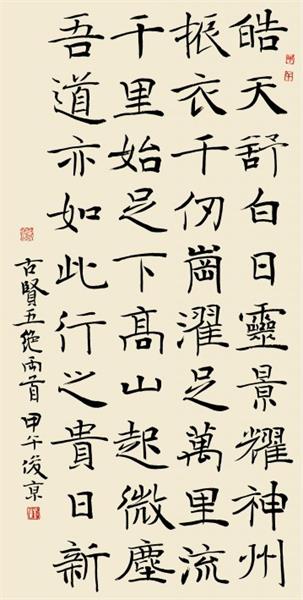 皓天舒白日靈景耀神州
振衣千仞崗濯足萬里流
千里始足下高山起微塵
吾道亦如此行之貴日新
古賢五絕兩首 甲午俊京